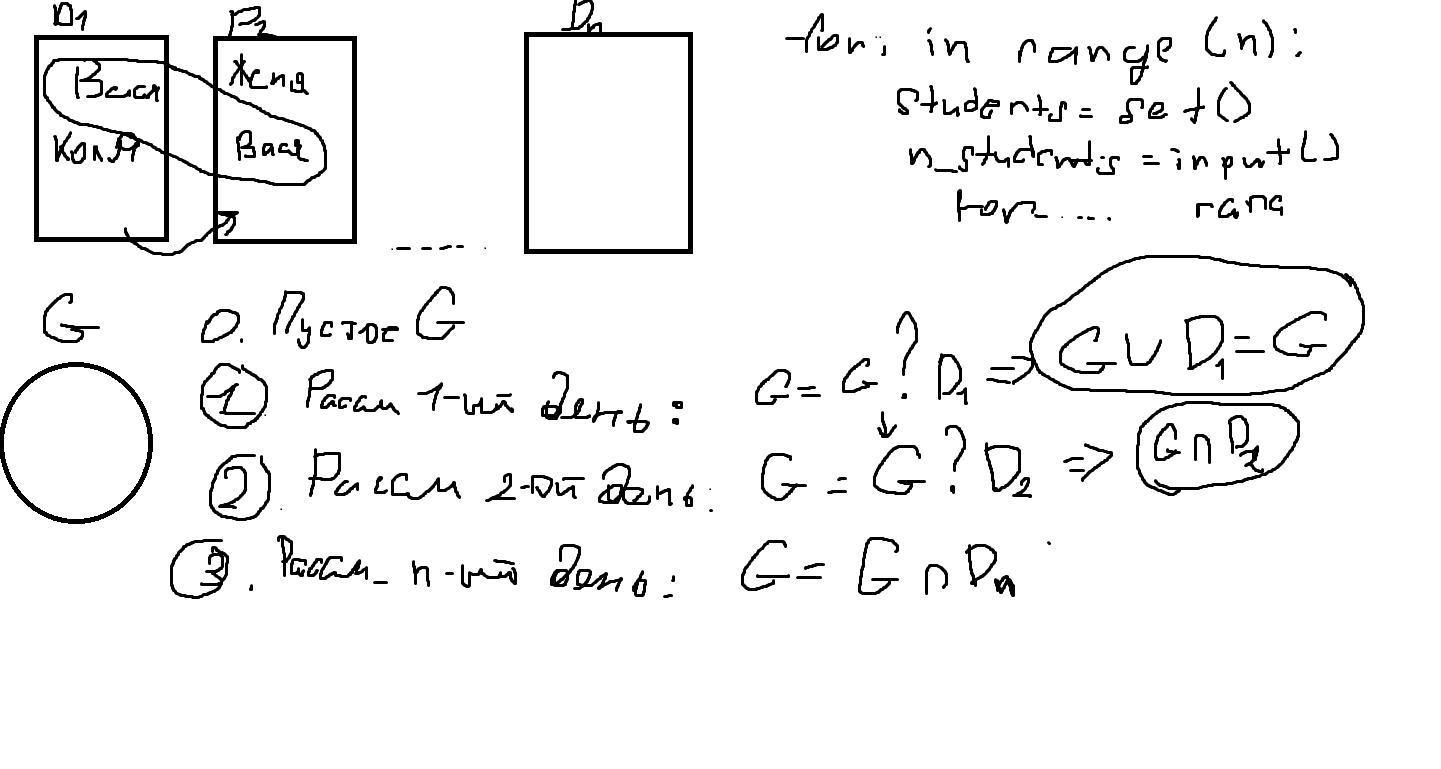 D1 D2 Dn
Вася Женя
Коля Вася
for i in range (n):
students = set()
n_students = input()
for .... rang
G 0. Пустое G
1 Рассм 1-ый день: G = G ? D1 => G ∪ D1 = G
2 Рассм 2-ой день: G = G ? D2 => G ∩ D2
3. Рассм_ n-ый день: G = G ∩ Dn